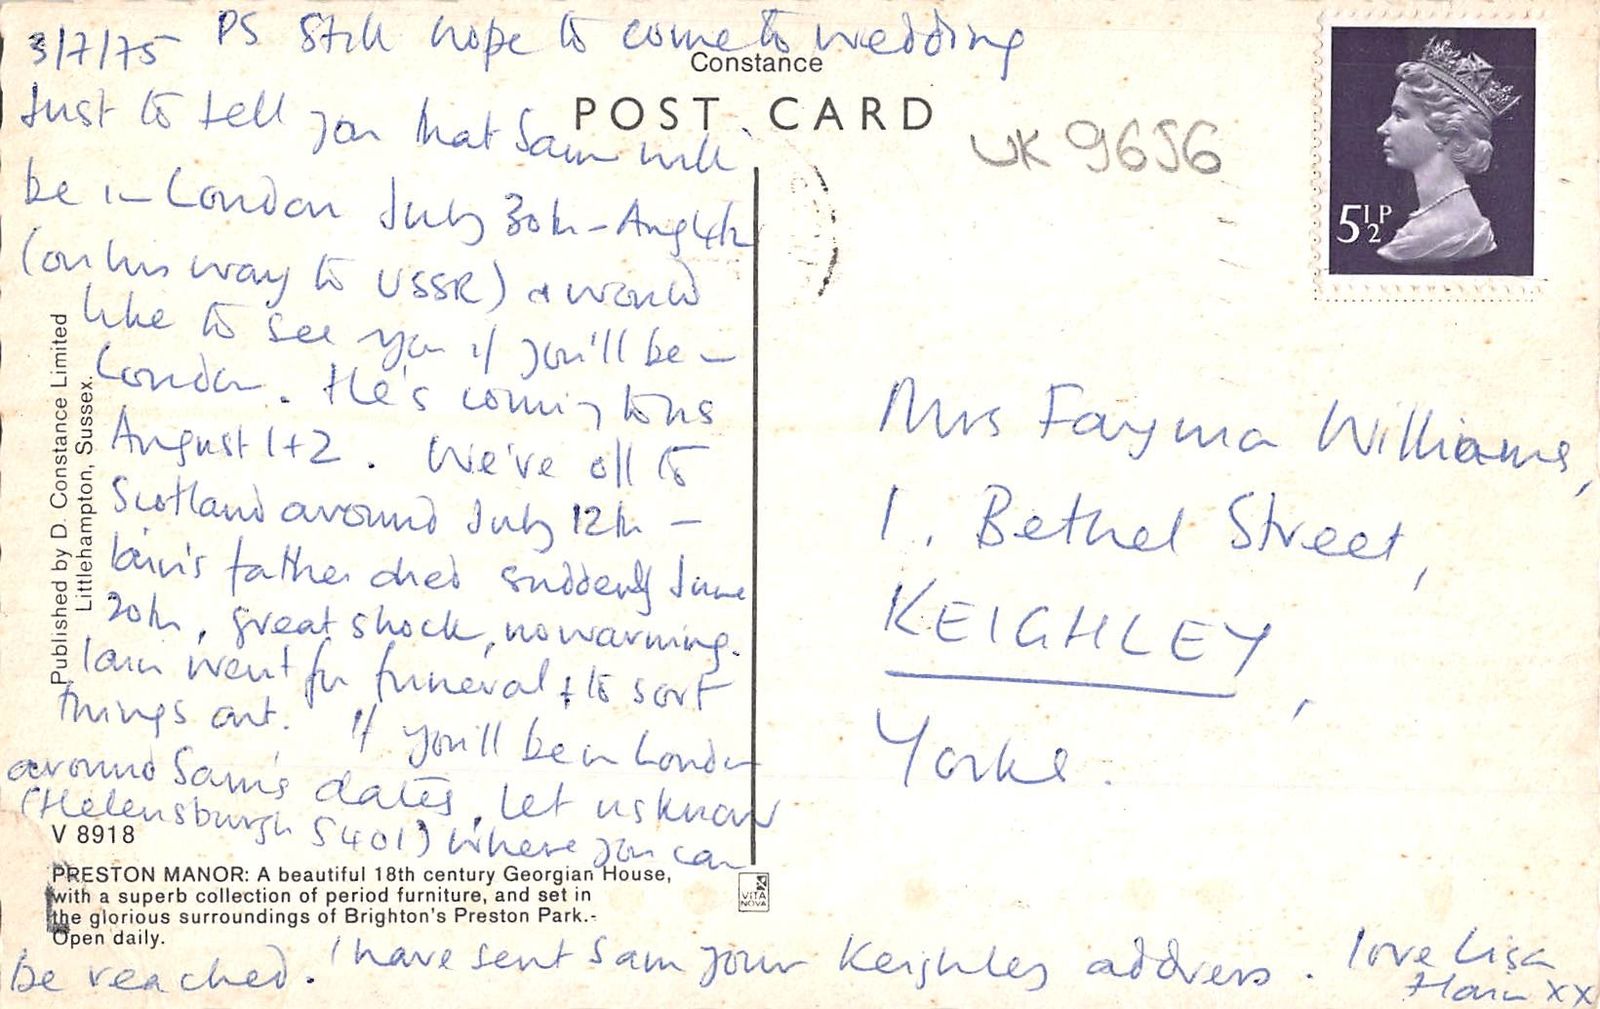 3/7/75 PS Still hope to come to wedding
Constance
POST CARD
UK 9656
5½P
Just to tell you that Sam will
be in London July 30th - Aug 4th
(on his way to USSR) & would
like to see you if you'll be in
London. He's coming to us
August 1+2. We've all to
Scotland around July 12th -
Iain's father died suddenly June
20th, great shock, no warning.
Iain went for funeral + to sort
things out. If you'll be in London
around Sam's dates, let us know
(Helensburgh 5401) where you can
be reached. I have sent Sam your Keighley address. love Lisa
+Iain XX
Published by D. Constance Limited
Littlehampton, Sussex.
V 8918
PRESTON MANOR: A beautiful 18th century Georgian House,
with a superb collection of period furniture, and set in
the glorious surroundings of Brighton's Preston Park.-
Open daily.
VITA
NOVA
Mrs Fayma Williams,
1, Bethel Street,
KEIGHLEY,
Yorks.